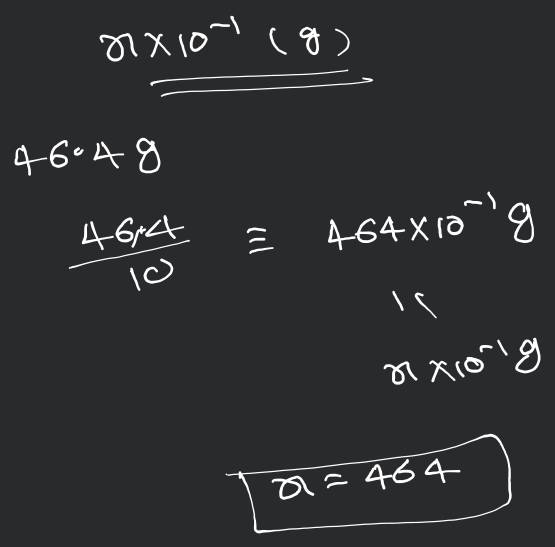 x×10⁻¹ (g)
46.4 g
46.4/10 ≡ 464×10⁻¹ g
x×10⁻¹ g
x = 464